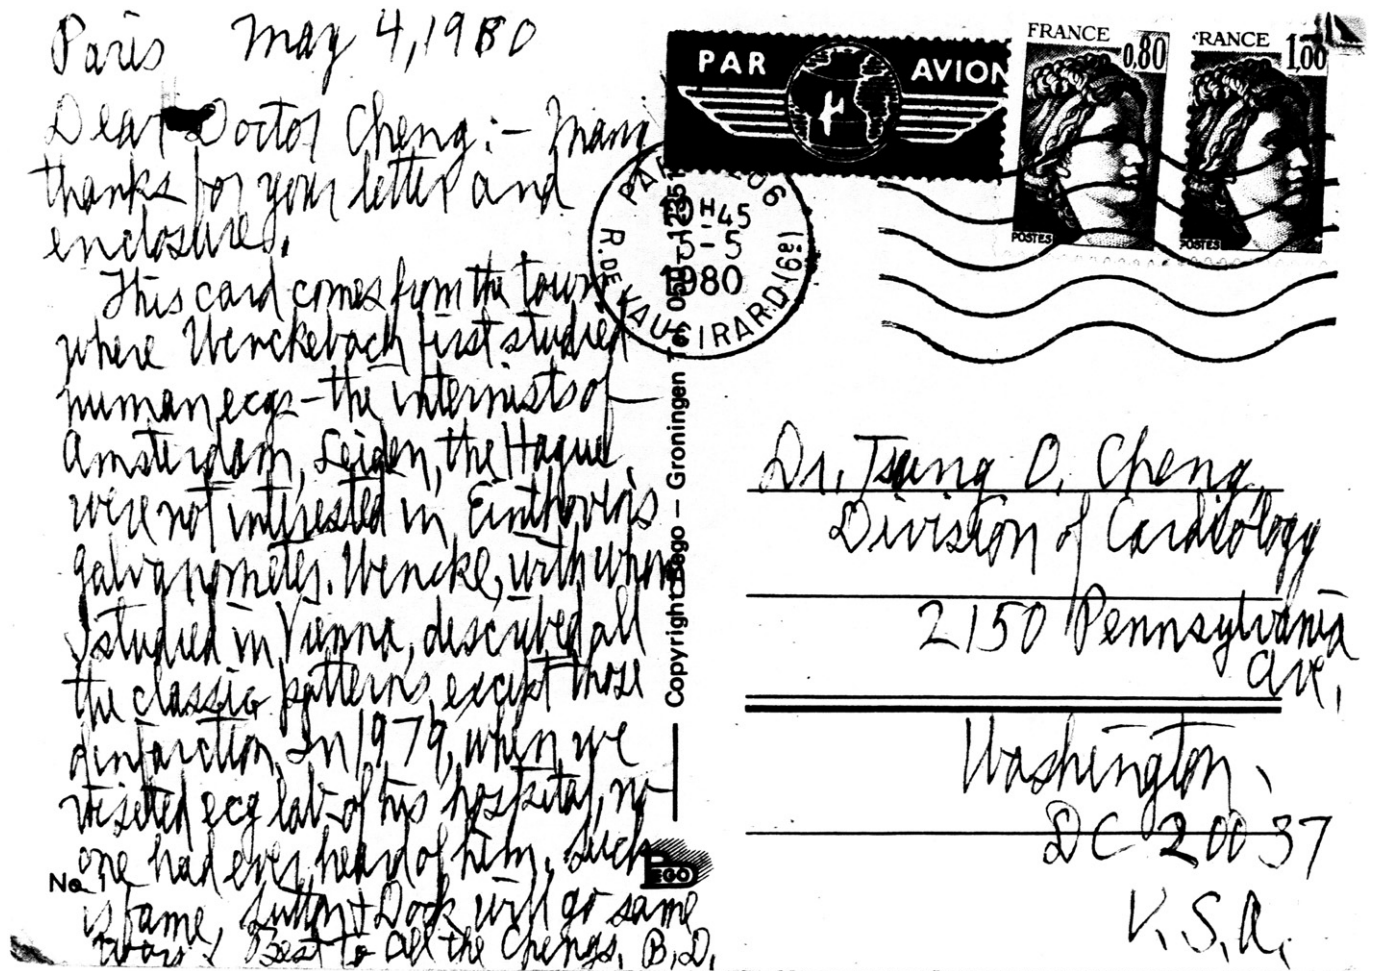 Paris May 4, 1980
Dear Doctor Cheng:- Many
thanks for your letter and
enclosures.
This card comes from the town
where Wenckebach first studied
human ecgs - the internists of
Amsterdam, Leiden, the Hague,
were not interested in Einthoven's
galvanometer. Wencke, with whom
I studied in Vienna, described all
the classic patterns, except those
of infarction. In 1979, when we
visited ecg lab of his hospital, no-
one had ever heard of him. Such
is fame, Sutton & Dock will go same
way! Best to all the Chengs. B.D.
No. 1
Copyright Bego - Groningen
BEGO
PAR AVION
FRANCE 0,80
POSTES
FRANCE 1,00
POSTES
PARIS 106
H45
5-5
1980
R. DE VAUGIRARD (6e)
Dr. Tsung O. Cheng
Division of Cardiology
2150 Pennsylvania
Ave.
Washington,
DC 20037
U.S.A.